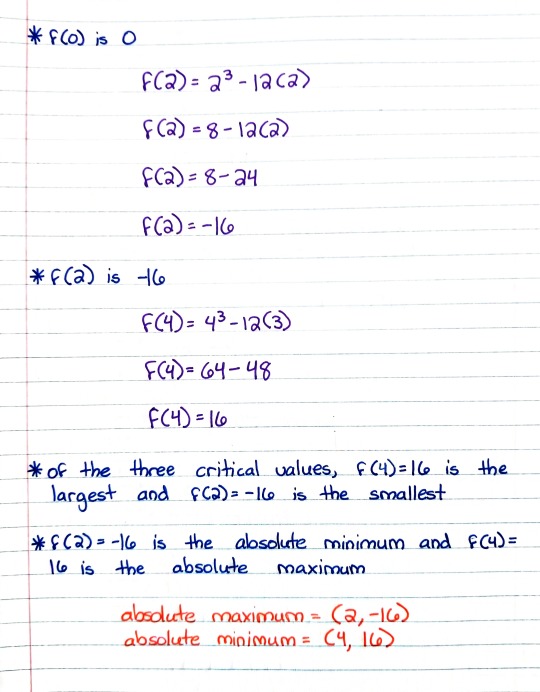 * f(0) is 0
f(2) = 2³ - 12(2)
f(2) = 8 - 12(2)
f(2) = 8 - 24
f(2) = -16
* f(2) is -16
f(4) = 4³ - 12(3)
f(4) = 64 - 48
f(4) = 16
* of the three critical values, f(4)=16 is the
largest and f(2) = -16 is the smallest
* f(2) = -16 is the absolute minimum and f(4) =
16 is the absolute maximum
absolute maximum = (2, -16)
absolute minimum = (4, 16)